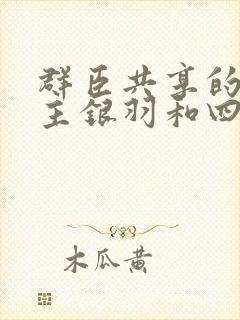 群臣共享的
主银羽和四
木瓜黄